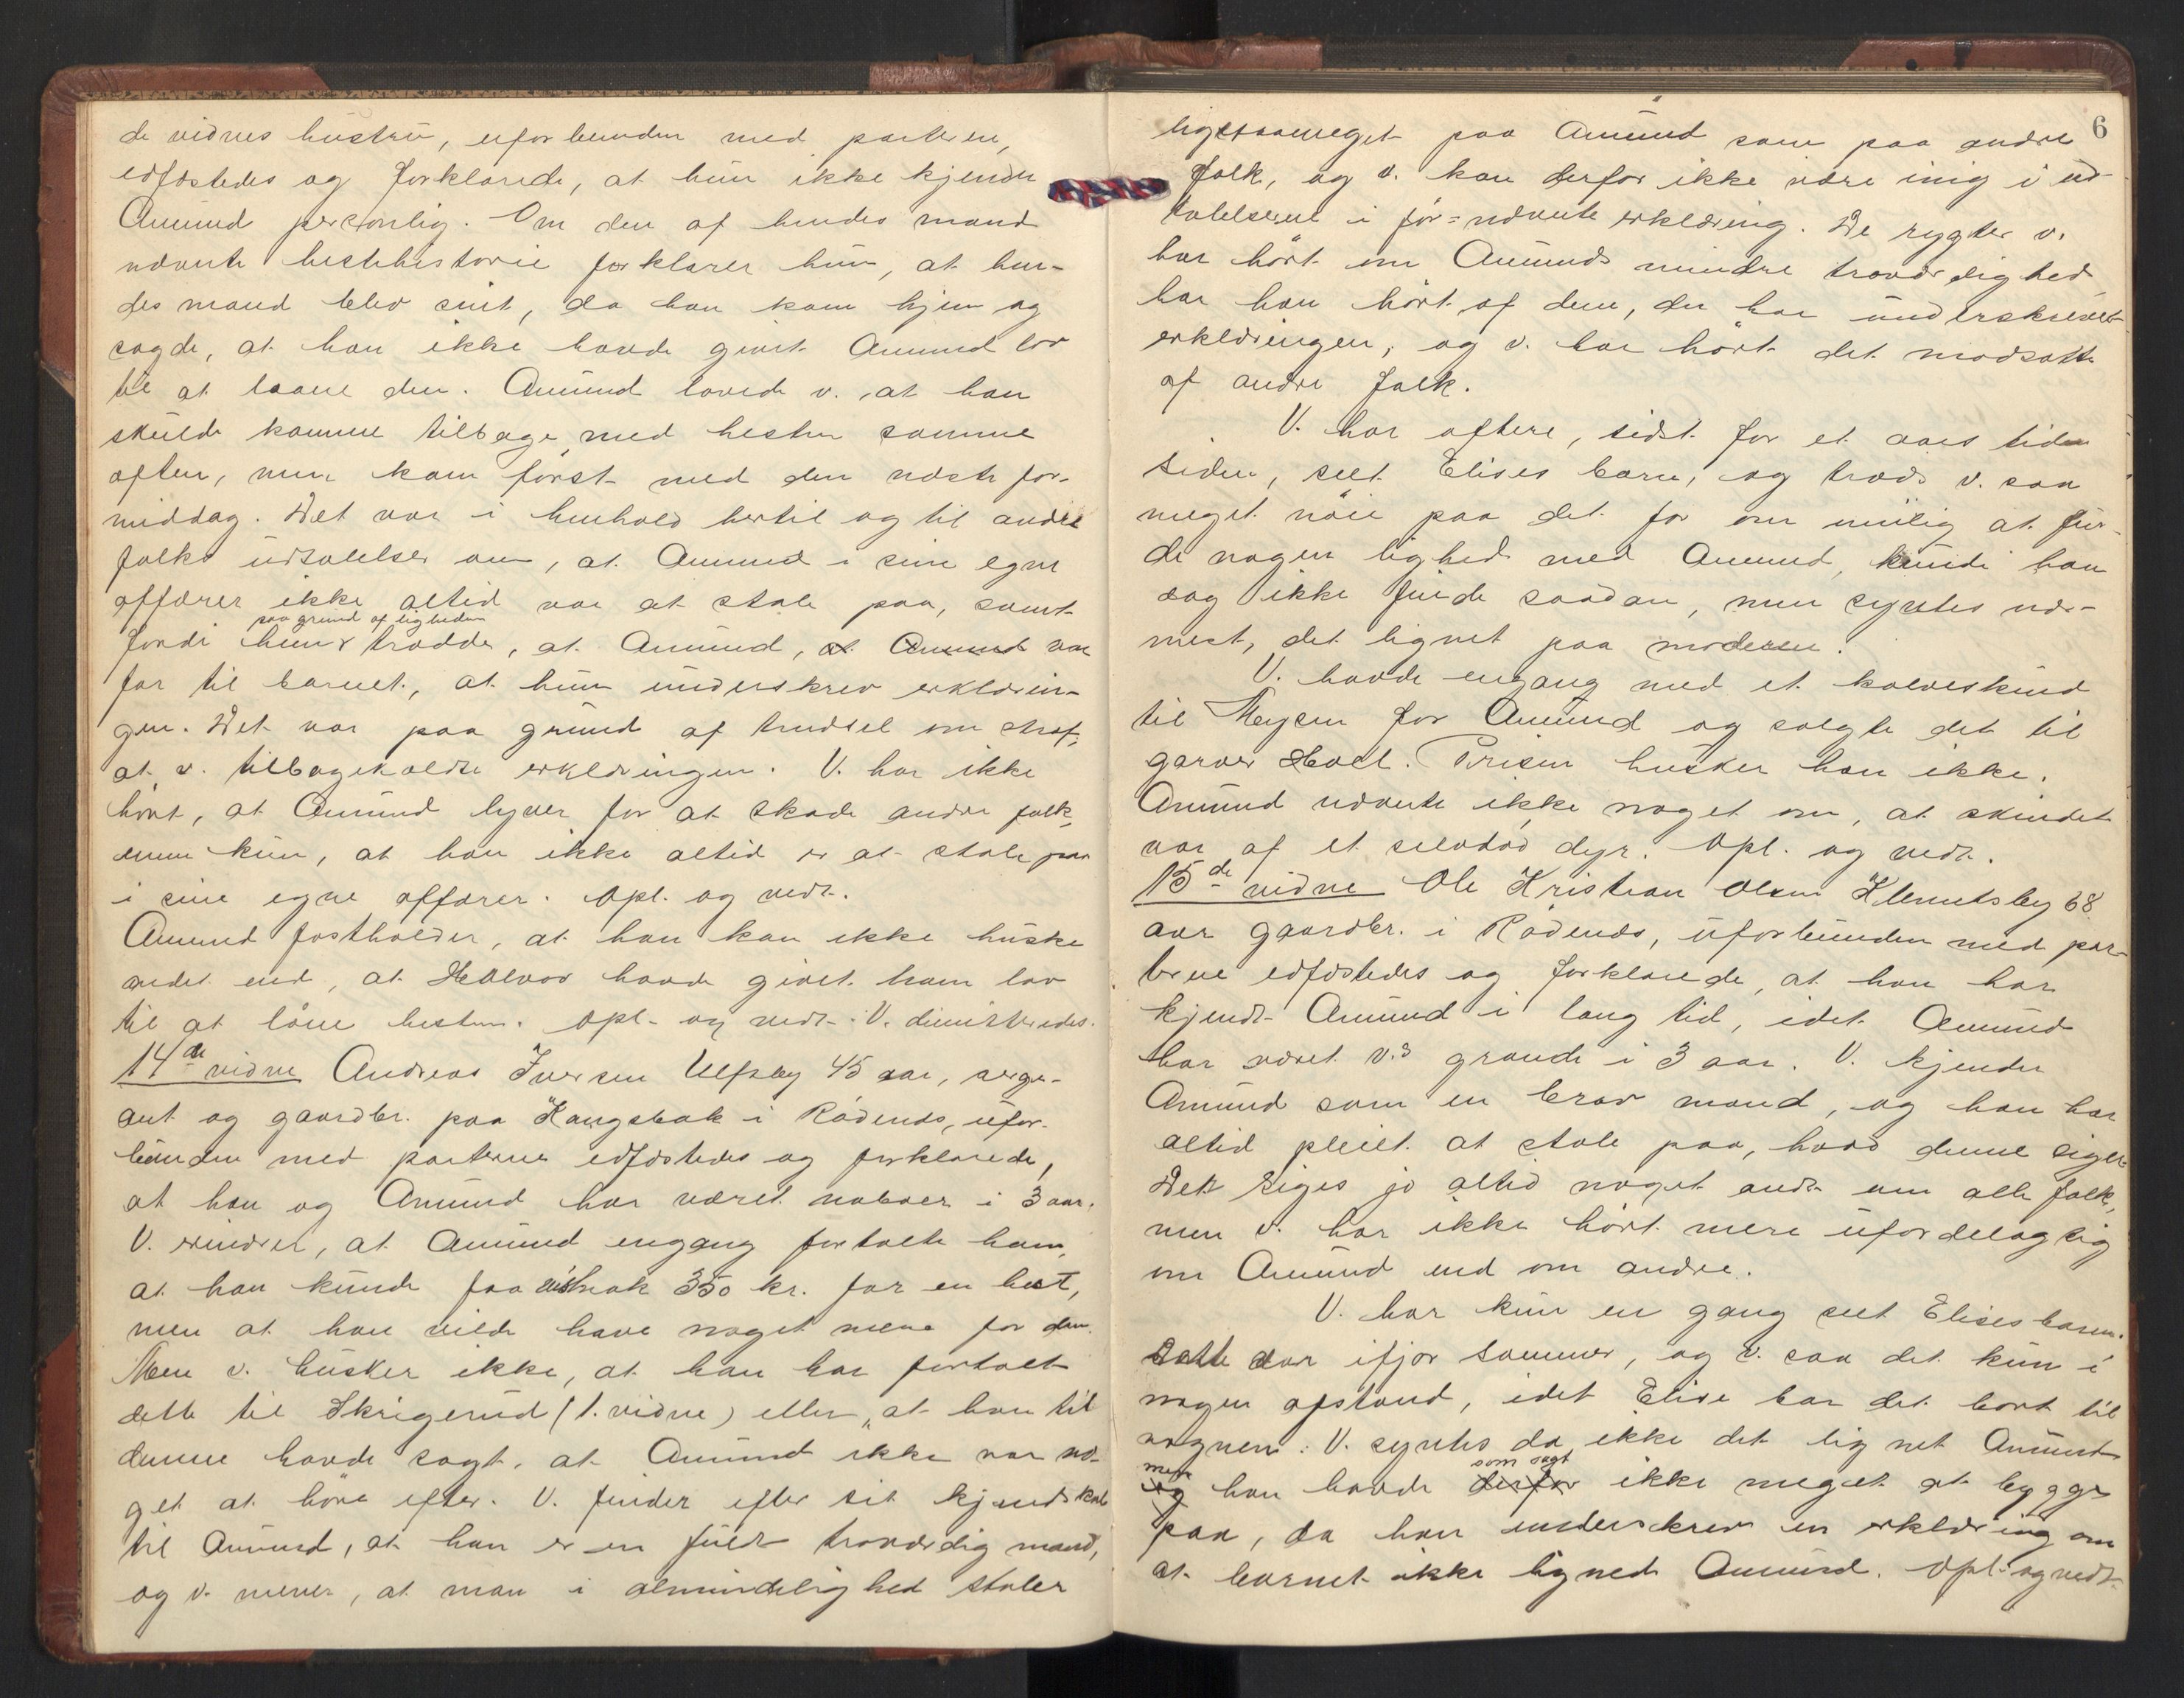 de vidnes hustru, uforbunden med parterne,
edfæstedes og forklarede, at hun ikke kjender
Amund personlig. Om den af hendes mand
nævnte hestehistorie forklarer hun, at hen-
des mand blev sint, da han kom hjem og
sagde, at han ikke havde givet Amund lov
til at laane den. Amund lovede v., at han
skulde komme tilbage med hesten samme
aften, men kom først med den næste for-
middag. Det var i henhold hertil og til andre
folks udtalelser om, at Amund i sine egne
affærer ikke altid var at stole paa, samt
paa grund af ligheden
fordi hun trodde, at Amund, at Amund var
far til barnet, at hun underskrev erklærin-
gen. Det var paa grund af trudsel om straf,
at v. tilbagekaldte erklæringen. V. har ikke
hørt, at Amund lyver for at skade andre folk,
men kun, at han ikke altid er at stole paa
i sine egne affærer. Opl. og vedt.
Amund fastholder, at han kan ikke huske
andet end, at Halvor havde givet ham lov
til at låne hesten. Opl. og vedt. V. dimitteredes.
14de vidne Andreas Iversen Ulfsby 45 aar, serge-
ant og gaardbr. paa Kangsbak i Rødenes, ufor-
bunden med parterne edfæstedes og forklarede,
at han og Amund har været naboer i 3 aar.
V. erindrer, at Amund engang fortalte ham,
at han kunde faa visnok 350 kr. for en hest,
men at han vilde have noget mere for den.
Men v. husker ikke, at han har fortalt
dette til Skrigerud (1. vidne) eller, at han til
denne havde sagt, at Amund ikke var no-
get at høre efter. V. finder efter sit kjendskab
til Amund, at han er en fuldt troværdig mand,
og v. mener, at man i almindelighed stoler
6
ligesaameget paa Amund som paa andre
folk, og v. kan derfor ikke være enig i ud-
talelserne i før-nævnte erklæring. De rygter v.
har hørt om Amunds mindre troværdighed
har han hørt af dem, der har underskrevet
erklæringen, og v. har hørt det modsatte
af andre folk.
V. har oftere, sidst for et aars tid
siden, seet Elises barn, og trods v. saa
meget nøie paa det for om mulig at fin-
de nogen lighed med Amund, kunde han
dog ikke finde saadan, men syntes nær-
mest, det lignet paa moderen.
V. havde engang med et kalveskind
til Mysen for Amund og solgte det til
garver Hoel. Prisen husker han ikke.
Amund nævnte ikke noget om, at skindet
var af et selvdød dyr. Opl. og vedt.
15de vidne Ole Kristian Olsen Klemetsby 68
aar gaardbr. i Rødenes, uforbunden med par-
terne edfæstedes og forklarede, at han har
kjendt Amund i lang tid, idet Amund
har været v.s grande i 3 aar. V. kjender
Amund som en brav mand, og han har
altid pleiet at stole paa, hvad denne siger.
Det siges jo altid noget ondt om alle folk,
men v. har ikke hørt mere ufordelagtig
om Amund end om andre.
V. har kun en gang seet Elises barn.
Dette var ifjor sommer, og v. saa det kun i
nogen afstand, idet Elise bar det bort til
vognen. V. syntes da ikke det lignet Amund
men som sagt
og han havde derfor ikke meget at bygge
paa, da han underskrev en erklæring om
at barnet ikke lignede Amund. Opl. og vedt.